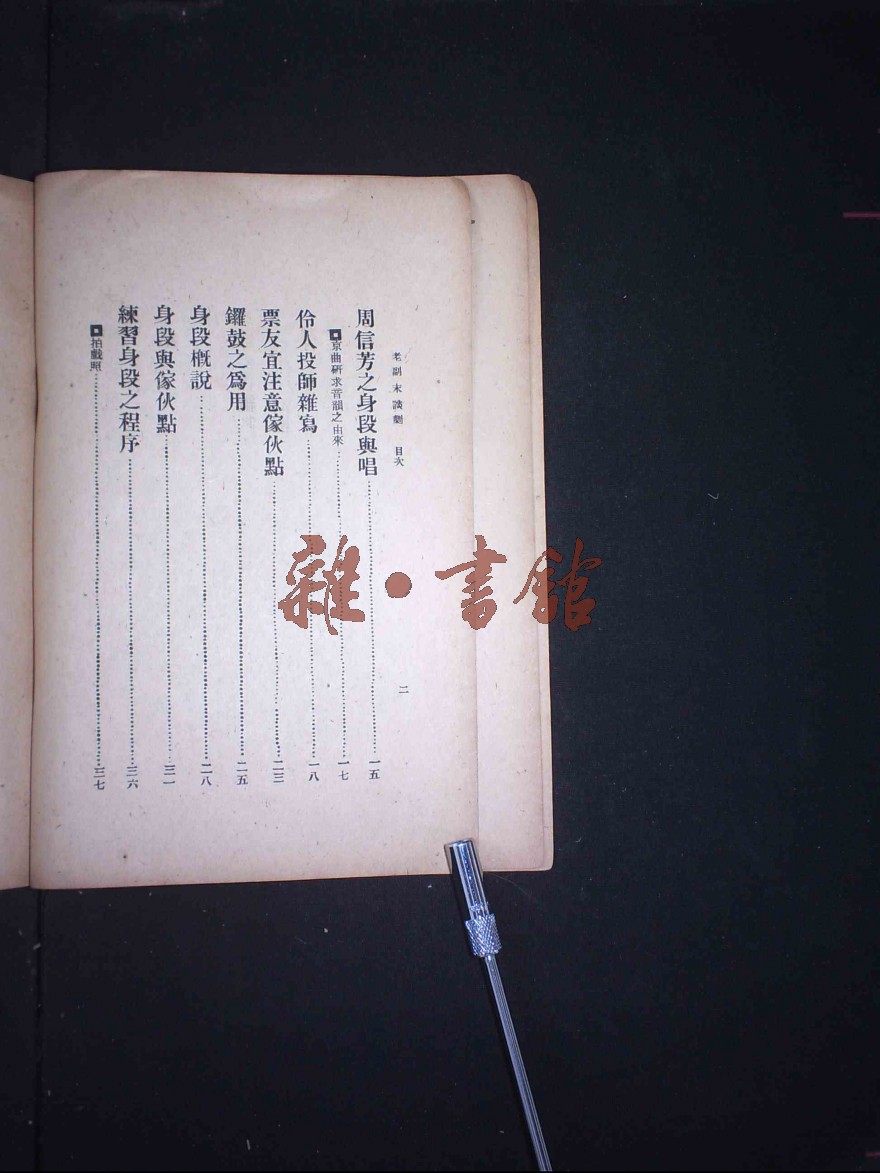 老副末談劇 目次 二
周信芳之身段與唱……一五
京曲研求音韻之由來……一七
伶人投師雜寫……一八
票友宜注意傢伙點……二三
鑼鼓之爲用……二五
身段槪說……二八
身段與傢伙點……三一
練習身段之程序……三六
拍戲照……三七
雜·書館